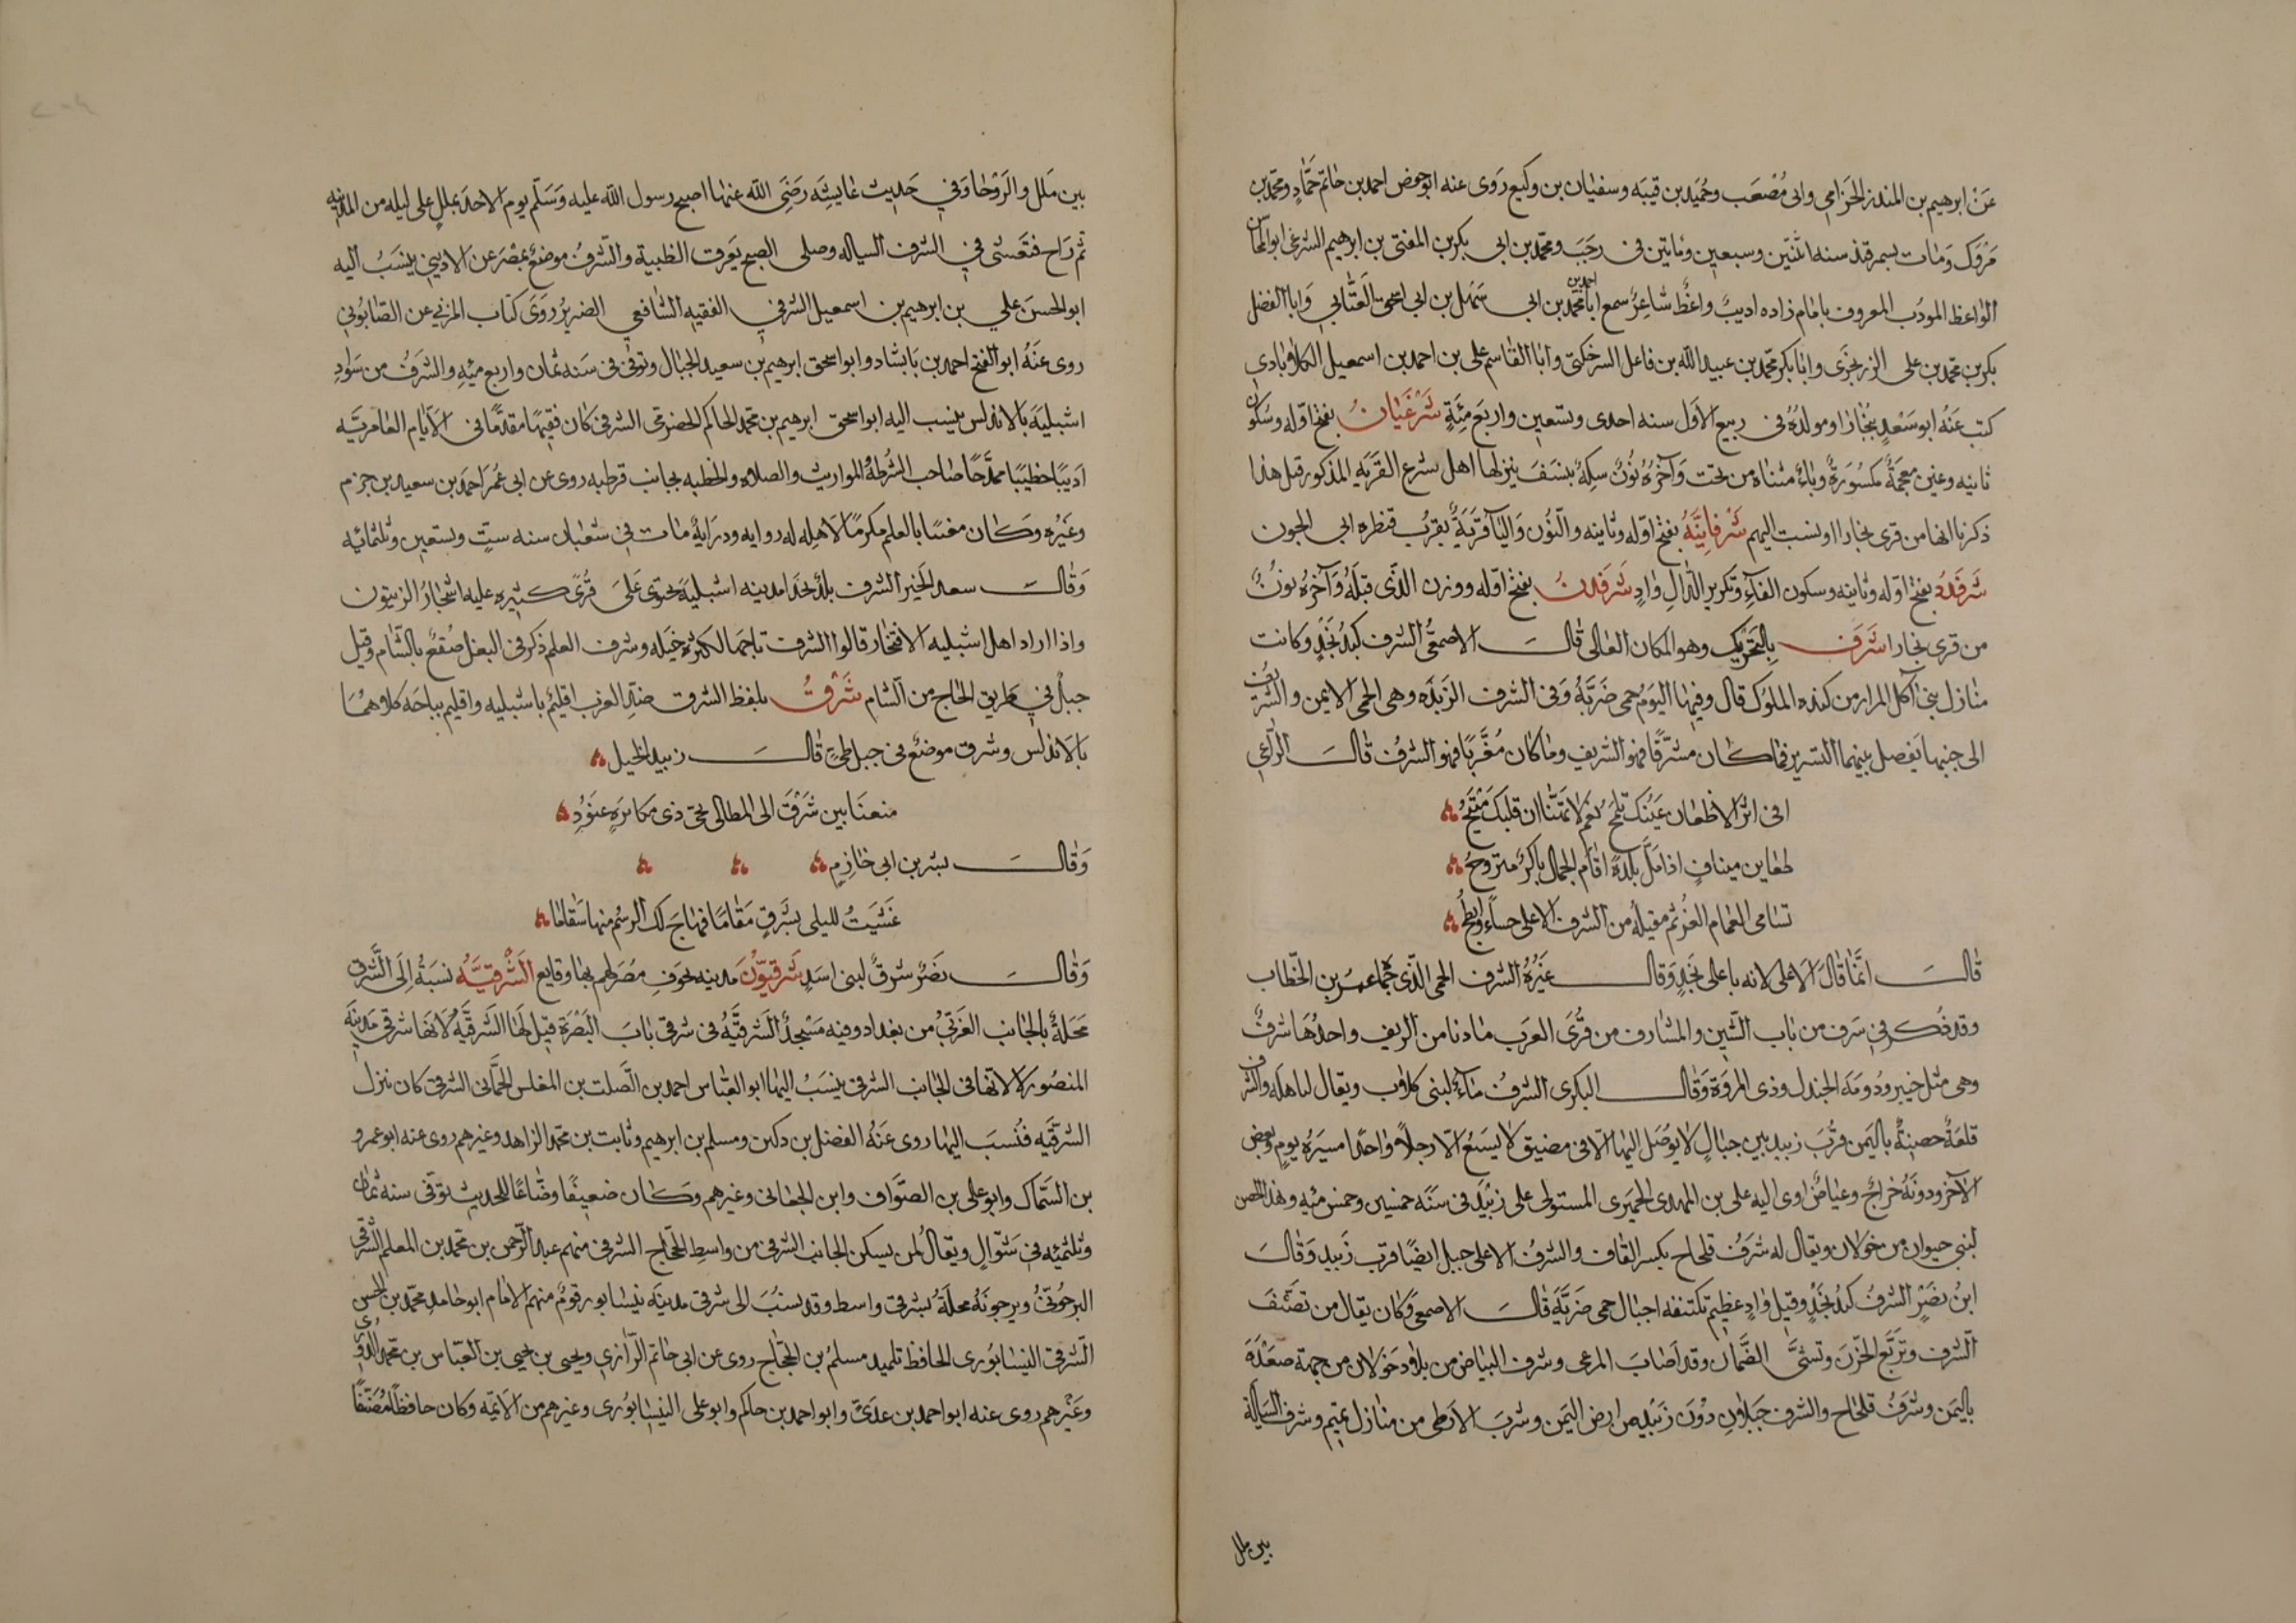 عن ابرهيم بن المنذر الحزامي وابى مصعب وحميد بن قتيبه وسفيان بن وكيع روى عنه ابو حفص احمد بن حاتم حماد ومحمد بن
مروك ومات بسمرقند سنه اثنتين وسبعين ومايتين فى رجب ومحمد بن ابى بكر بن المفتى بن ابرهيم الشرغى ابو المحاسن
الواعظ المودب المعروف بامام زاده اديب واعظ شاعر سمع ابا محمد احمد بن ابى سهل بن ابى اسحق العتابي وابا الفضل
بكر بن محمد بن على الزرنجرى وابا بكر محمد بن عبيد الله بن فاعل السرخكتى وابا القاسم على بن احمد بن اسمعيل الكلاباذي
كتب عنه ابو سعد ببخارا ومولده فى ربيع الاول سنه احدى وتسعين واربع مئة شرغيان بفتح اوله وسكون
ثانيه وغين معجمة مكسورة وياء مثناه من تحت وآخره نون سكة بنسف ينزلها اهل شرغ القريه المذكور قبل هذا
ذكرنا انها من قرى بخارا ونسبت اليهم شرفانيه بفتح اوله وثانيه والنون واليآ قرية بقرب قنطره ابى الجون
شرفدد بفتح اوله وثانيه وسكون الفآء وتكرير الدال واد شرفدن بفتح اوله ووزن الذى قبله وآخره نون
من قرى بخارا شرف بالتحريك وهو المكان العالى قال الاصمعى الشرف كبد نجد وكانت
منازل بنى آكل المرار من كنده الملوك قال وفيها اليوم حمى ضرية وفى الشرف الربذه وهى الحمى الايمن والشريف
الى جنبها يفصل بينهما التسرير فما كان مشرقا فهو الشريف وما كان مغربا فهو الشرف قال الراعي
افى اثر الاظعان عينك تلمح نعم لا تهنا ان قلبك متيح
ظعاين ميناف اذا مل بلدة اقام الجمال باكر متروح
تسامى الغمام الغر ثم مقيله من الشرف الاعلى حساء وابطح
قال انما قال الاعلى لانه باعلى نجد وقال غيره الشرف الحمى الذى حماه عمر بن الخطاب
وقد ذكر في سرف من باب السين والمشارف من قرى العرب ما دنا من الريف واحدها شرف
وهى مثل خيبر ودومة الجندل وذى المروة وقال البكرى الشرف مآء لبنى كلاب ويقال لباهله والشرف
قلعة حصينة باليمن قرب زبيد بين جبال لا يوصل اليها الا فى مضيق لا يسع الا رجلا واحدا مسيره يوم وبعض
الآخر ودونه خراج وغياض اوى اليه على بن المهدى الحميرى المستولى على زبيد فى سنه خمسين وخمس مئه وهذا الحصن
لبنى حيوان من خولان ويقال له شرف قلحاح بكسر القاف والشرف الاعلى جبل ايضا قرب زبيد وقال
ابن نصر الشرف كبد نجد وقيل واد عظيم تكتنفه اجبال حمى ضرية قال الاصمعى وكان يقال من تصيف
الشرف وتربع الحزن وتشتى الصمان وقد اصاب المرعى وشرف البياض من بلاد خولان من جهة صعدة
باليمن وشرف قلحاح والشرف جبلان دون زبيد من ارض اليمن وشرب الارطى من منازل تميم وشرف السيالة
بين ملل
بين ملل والروحا وفي حديث عايشه رضى الله عنها اصبح رسول الله عليه وسلم يوم الاحد بملل على ليله من المدينه
ثم راح فتعشى في الشرف السياله وصلى الصبح بعرق الظبية والشرف موضع بمصر عن الاديبي ينسب اليه
ابو الحسن علي بن ابرهيم بن اسمعيل الشرفي الفقيه الشافعي الضرير روى كتاب المزنى عن الصابوني
روى عنه ابو الفتح احمد بن بابشاد وابو اسحق ابرهيم بن سعيد الحبال وتوفى فى سنه ثمان واربع مئه والشرف من سواد
اشبليه بالاندلس ينسب اليه ابو اسحق ابرهيم بن محمد الحاكم الحضرمى الشرفى كان فقيها مقدما فى الايام العامريه
اديبا خطيبا ممدحا صاحب الشرطه المواريث والصلاه والخطبه بجانب قرطبه روى عن ابى عمر احمد بن سعيد بن حزم
وغيره وكان معنيا بالعلم مكرما لاهله له روايه ودراية مات فى شعبان سنه ست وتسعين وثلثمائيه
وقال سعد الخير الشرف بلد بحذا مدينه اشبلية يحتوى على قرى كثيره عليه اشجار الزيتون
واذا اراد اهل اشبليه الافتخار قالوا الشرف تاجها لكثرة خيله وشرف العلم ذكر فى البعل صقع بالشام وقيل
جبل في طريق الحاج من الشام شرق بلفظ الشرق ضد الغرب اقليم باشبيليه واقليم بباجه كلاهما
بالاندلس وشرق موضع فى جبل طي قال زيد الخيل
منعنا بين شرق الى المطالى بحى ذى مكابره عنود
وقال بشر بن ابى خازم
غشيت لليلى بشرق مقاما فهاج لك الرسم منها سقاما
وقال نصر شرق لبنى اسد شرقيون مدينه بحوف مصر لهم بها وقايع الشرقيه نسبة الى الشرق
محلة بالجانب الغربى من بغداد وفيه مسجد الشرقيه فى شرقى باب البصرة قيل لها الشرقيه لانها شرقى مدينة
المنصور لا لانها فى الجانب الشرقى ينسب اليها ابو العباس احمد بن الصلت بن المغلس الحمانى الشرقى كان ينزل
الشرقيه فنسب اليها روى عنه الفضل بن دكين ومسلم بن ابرهيم وثابت بن محمد الزاهد وغيرهم روى عنه ابو عمرو
بن السماك وابو على بن الصواف وابن الجعانى وغيرهم وكان ضعيفا وضاعا للحديث توفى سنه ثمان
وثلثمئه فى شوال ويقال لمن يسكن الجانب الشرقى من واسط الحجاج الشرقى منهم عبد الرحمن بن محمد بن المعلم الشرقى
البرجونى وبرجونه محلة بشرقى واسط وقد ينسب الى شرقى مدينة نيسابور قوم منهم الامام ابو حامد محمد بن الحسن
الشرقى النيسابورى الحافظ تلميذ مسلم بن الحجاج روى عن ابى حاتم الرازي ويحيى بن يحيى بن العباس بن محمد الدورى
وغيرهم روى عنه ابو احمد بن عدى وابو احمد بن حاكم وابو على النيسابورى وغيرهم من الايمه وكان حافظا مصنفا